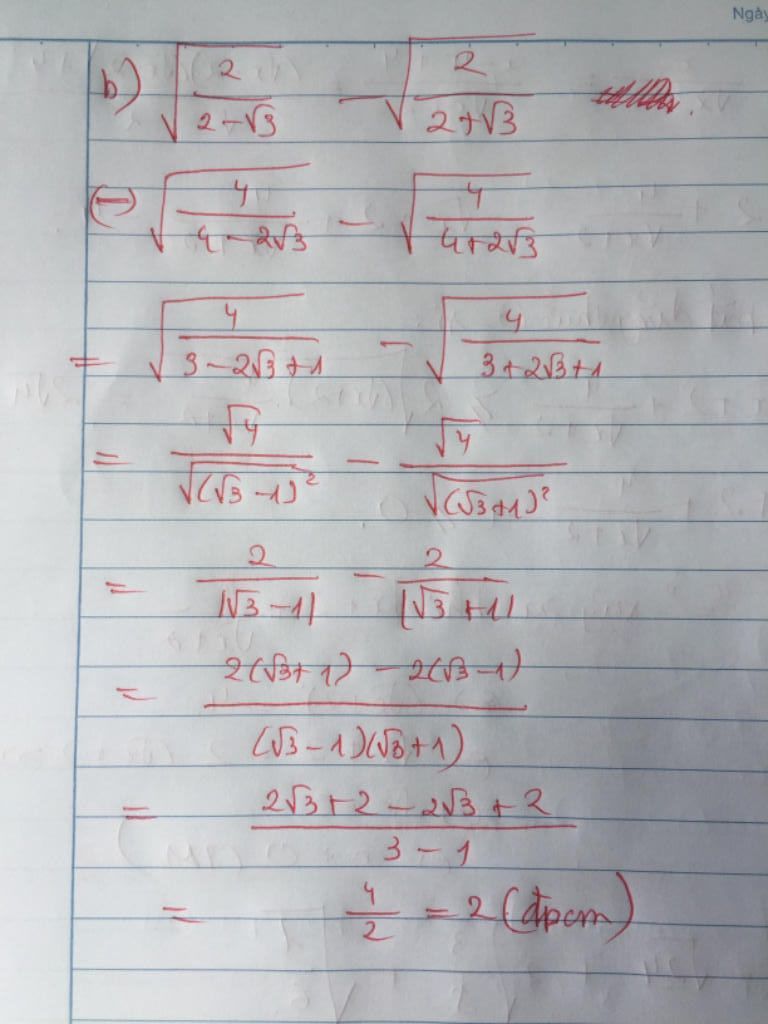 Ngày
b) √(2/(2-√3)) - √(2/(2+√3))
(=) √(4/(4-2√3)) - √(4/(4+2√3))
= √(4/(3-2√3+1)) - √(4/(3+2√3+1))
= √4/√((√3-1)²) - √4/√((√3+1)²)
= 2/|√3-1| - 2/|√3+1|
= (2(√3+1) - 2(√3-1))/((√3-1)(√3+1))
= (2√3+2-2√3+2)/(3-1)
= 4/2 = 2 (đpcm)